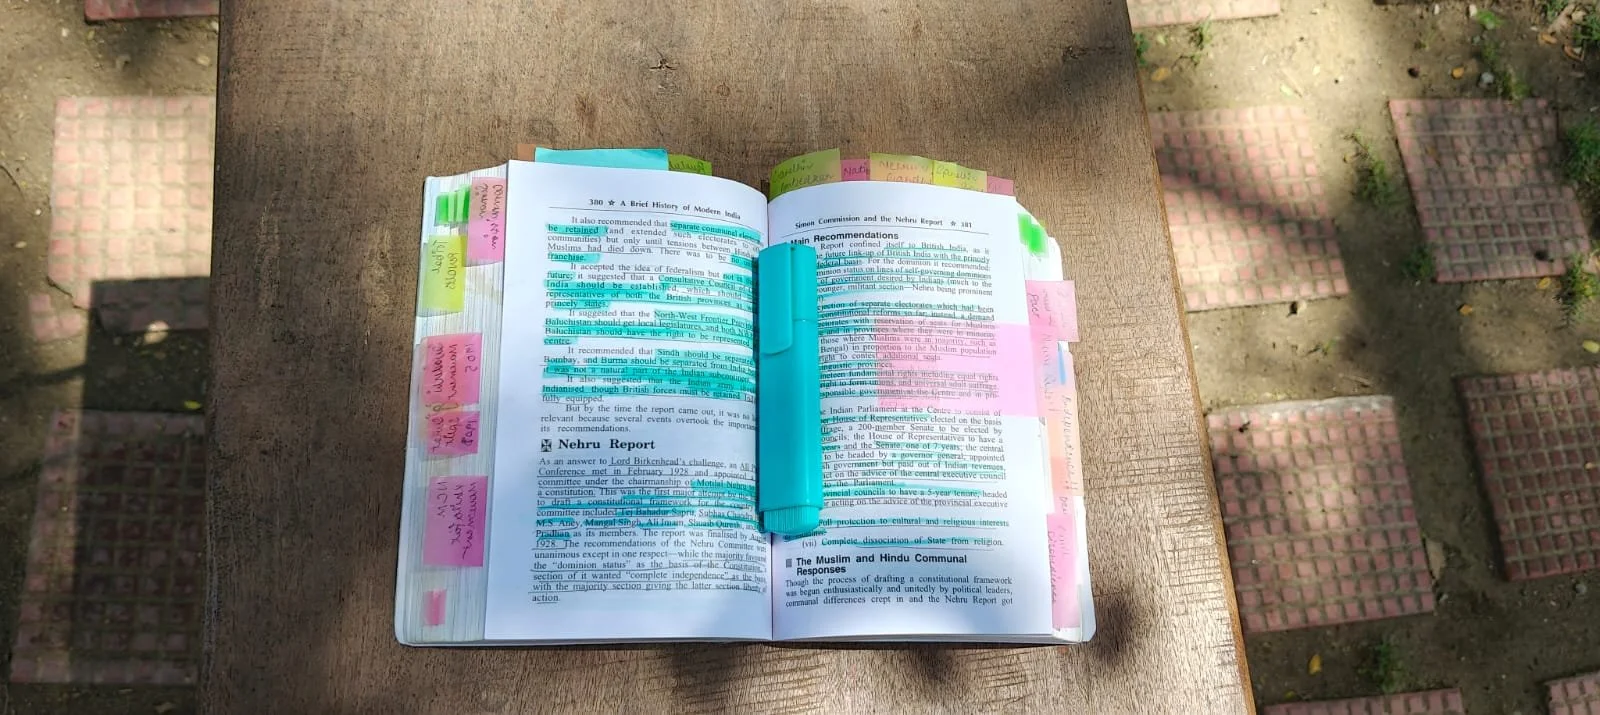 380 ☆ A Brief History of Modern India
It also recommended that separate communal
be retained (and extended such electorates to
communities) but only until tensions between
Muslims had died down. There was to be no
franchise.
It accepted the idea of federalism but not
future; it suggested that a Consultative Council
India should be established which should
representatives of both the British provinces
princely states.
It suggested that the North-West Frontier
Baluchistan should get local legislatures, and both
Baluchistan should have the right to be represented
centre.
It recommended that Sindh should be separated
Bombay, and Burma should be separated from India
it was not a natural part of the Indian subcontinent.
It also suggested that the Indian army
Indianised though British forces must be retained
fully equipped.
But by the time the report came out, it was no
relevant because several events overtook the
its recommendations.
Nehru Report
As an answer to Lord Birkenhead's challenge, an All
Conference met in February 1928 and appointed
committee under the chairmanship of Motilal Nehru
a constitution. This was the first major attempt by
to draft a constitutional framework for the
committee included Tej Bahadur Sapru, Subhas
M.S. Aney, Mangal Singh, Ali Imam, Shuaib Qureshi
Pradhan as its members. The report was finalised by
1928. The recommendations of the Nehru Committee
unanimous except in one respect—while the majority
the "dominion status" as the basis of the Constitution,
section of it wanted "complete independence" as the
with the majority section giving the latter section liberty
action.
Simon Commission and the Nehru Report ☆ 381
Main Recommendations
Report confined itself to British India, as it
future link-up of British India with the princely
federal basis. For the dominion it recommended:
status on lines of self-governing dominions
of government desired by Indians (much to the
younger, militant section—Nehru being prominent
of separate electorates which had been
constitutional reforms so far; instead a demand
with reservation of seats for Muslims
and in provinces where they were in minority
those where Muslims were in majority, such as
Bengal) in proportion to the Muslim population
right to contest additional seats.
provinces.
fundamental rights including equal rights
right to form unions, and universal adult suffrage.
government at the Centre and in
Indian Parliament at the Centre to consist of
House of Representatives elected on the basis
a 200-member Senate to be elected by
the House of Representatives to have a
years and the Senate, one of 7 years; the central
to be headed by a governor general, appointed
government but paid out of Indian revenues,
on the advice of the central executive council
to the Parliament.
councils to have a 5-year tenure, headed
acting on the advice of the provincial executive
Full protection to cultural and religious interests
(vii) Complete dissociation of State from religion.
The Muslim and Hindu Communal
Responses
Though the process of drafting a constitutional framework
was begun enthusiastically and unitedly by political leaders,
communal differences crept in and the Nehru Report got